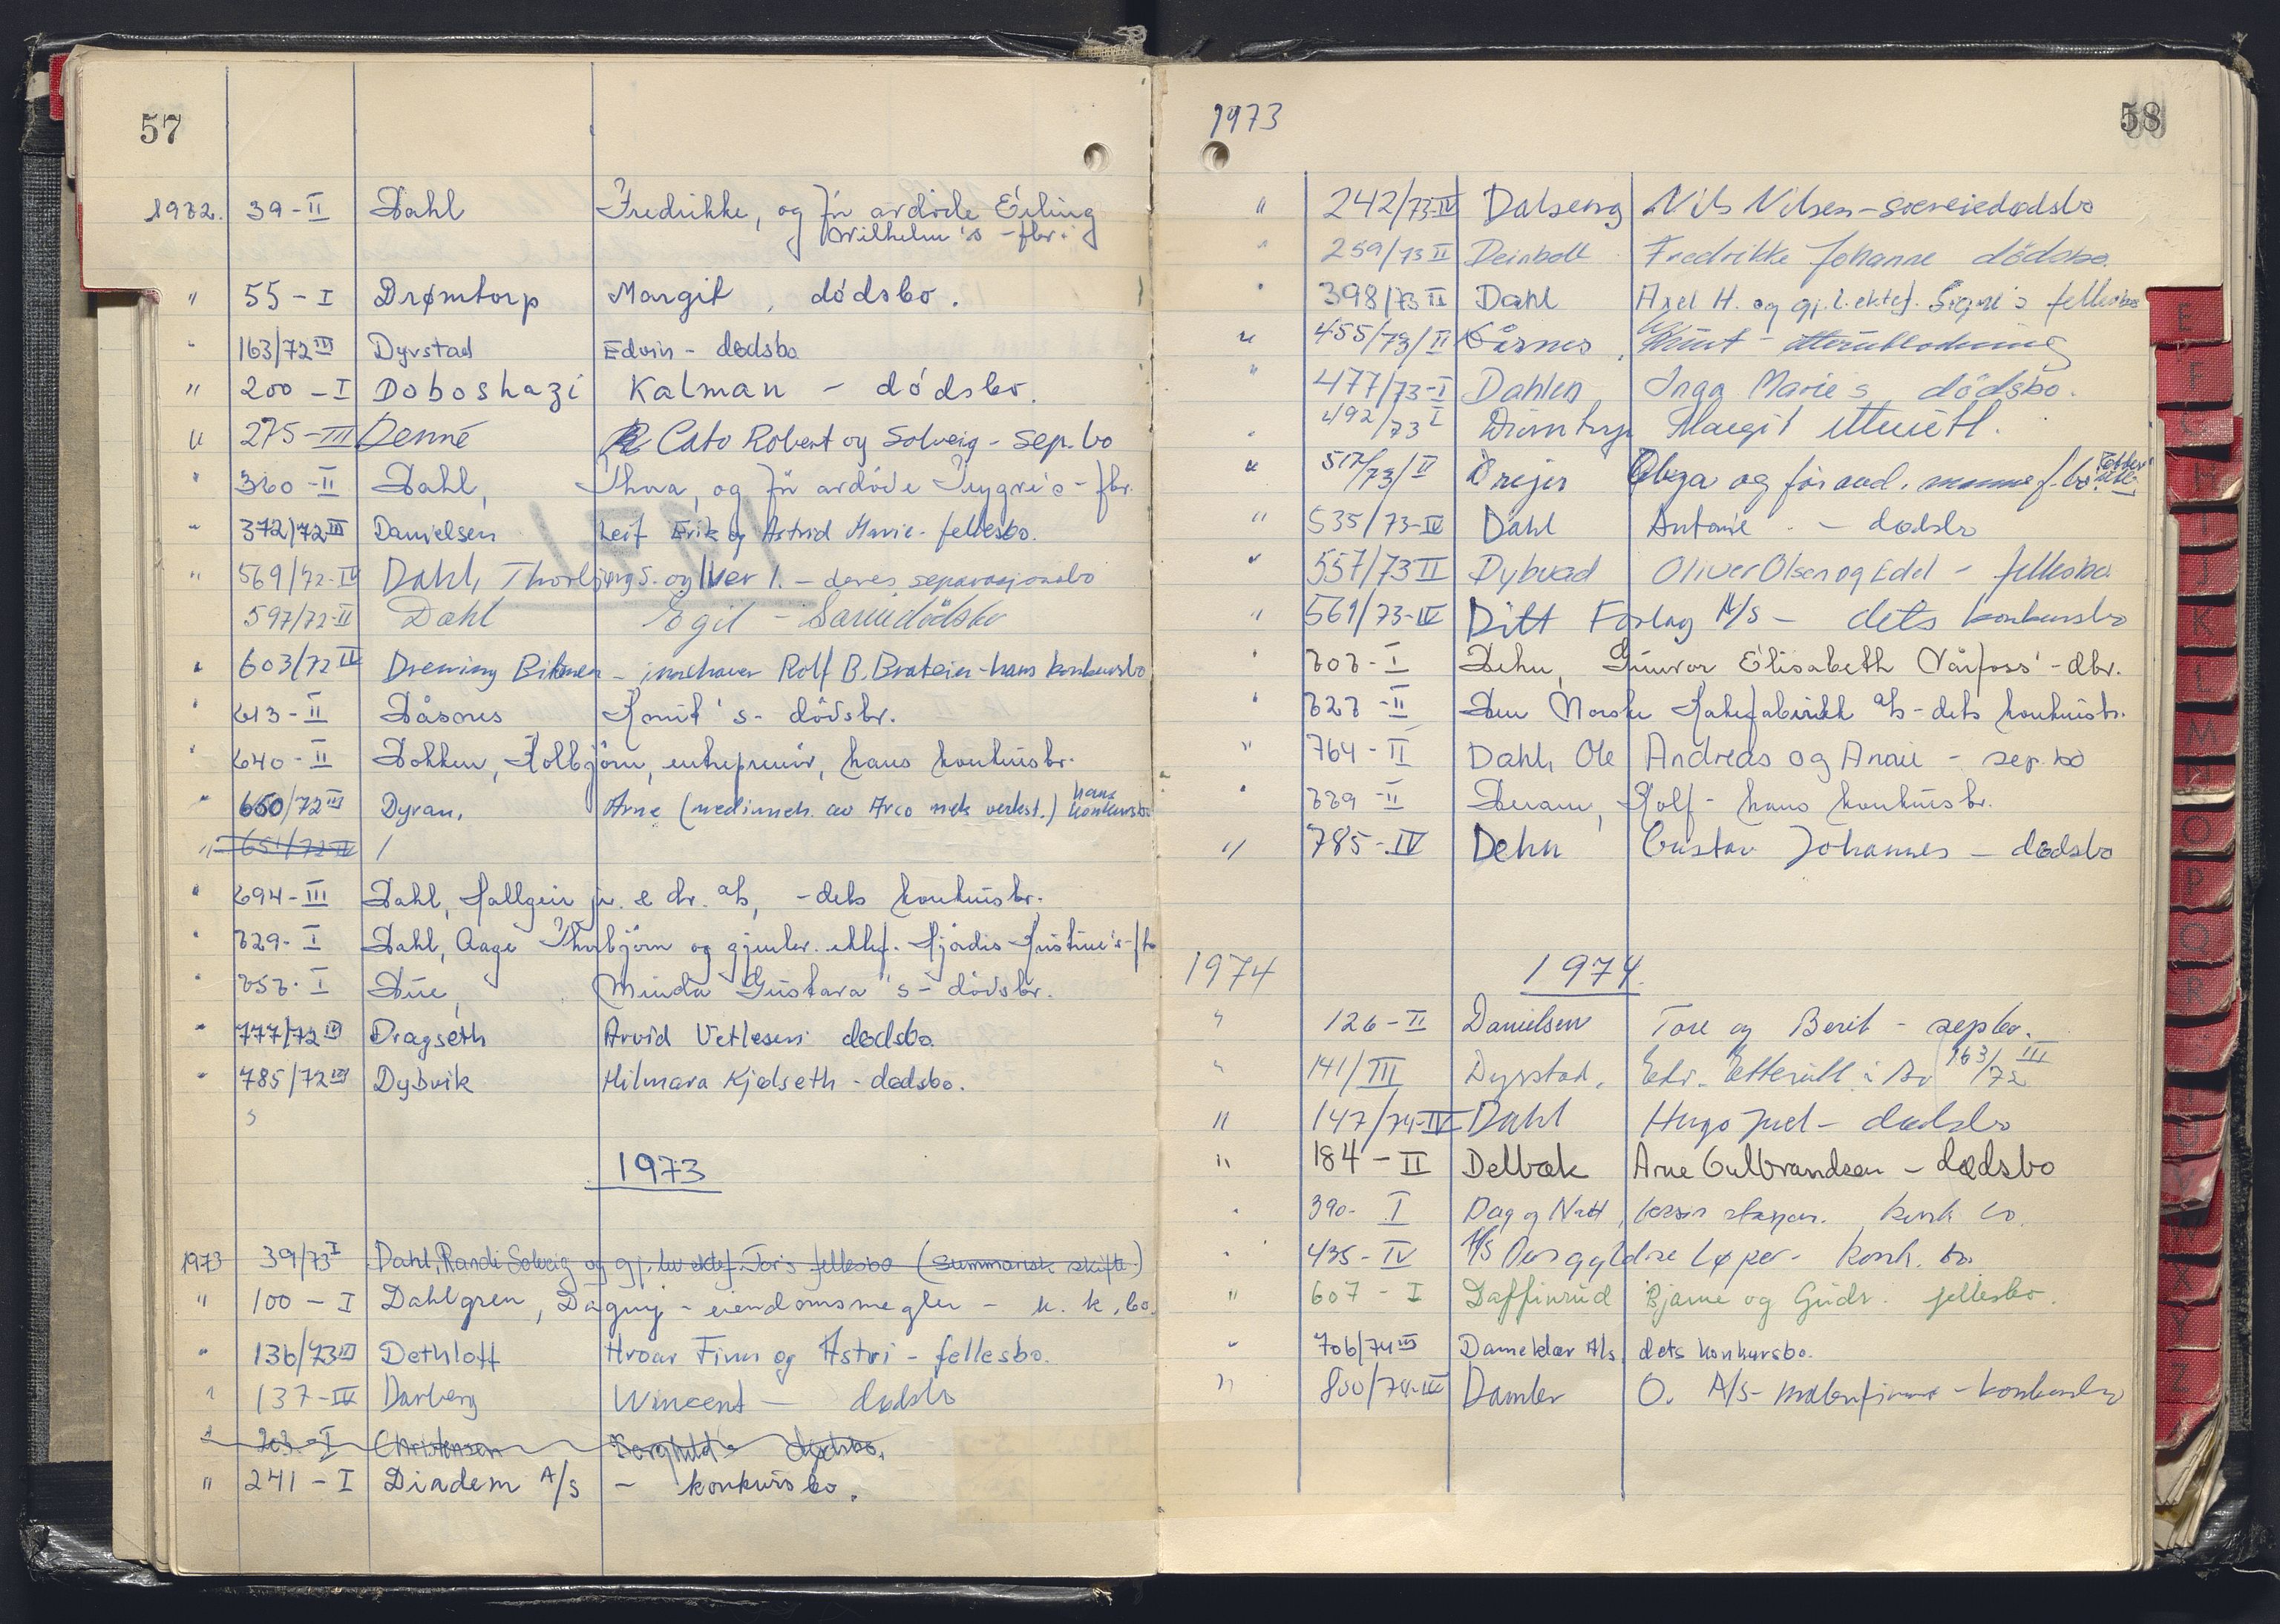 57
1972. 39-II Dahl Fredrikke, og før avdøde Erling
Wilhelm's - fbr.
" 55-I Drømtorp Margit, dødsbo.
" 163/72 III Dyrstad Edvin - dødsbo
" 200-I Doboshazi Kalman - dødsbo.
" 275-III Denné Cato Robert og Solveig - sep.bo
" 360-II Dahl, Thora, og før avdøde Trygve's - fbr.
" 372/72 III Danielsen Leif Erik og Astrid Marie - fellesbo.
" 569/72-IV Dahl, Thorbjørg S. og Iver I. - deres separasjonsbo
597/72-II Dahl Egil - Særeiedødsbo
" 603/72 IV Drewing - innehaver Rolf B. Bratein - hans konkursbo
" 613-II Dåsnes Knut's - dødsbr.
" 640-II Dokken, Kolbjørn, entreprenør, hans konkursbr.
" 660/72 III Dyran, Arne (medinneh. av Arco mek verkst.) hans konkursbo
" 651/72 IV /
" 694-III Dahl, Hallgeir jr. & Co. A/S, - dets konkursbr.
" 729-I Dahl, Aage Thorbjørn og gjenlev. ektef. Hjørdis Kristine's - fbr
" 757-I Due, Minda Gustava's - dødsbr.
" 777/72 IV Dragseth Arvid Vetlesen dødsbo
" 785/72 IV Dybvik Hilmara Kjølseth - dødsbo.
1973
1973 39/73 I Dahl, Randi Solveig og gj.lev ektef Tor's fellesbo (summarisk skifte)
" 100-I Dahlgren, Dagny - eiendomsmegler - k.k.bo.
" 136/73 III Dethloff Hroar Finn og Astri - fellesbo.
" 137-IV Darberg Wincent - dødsbo
" 203-I Christensen Borghild's dødsbo.
" 241-I Diadem A/S - konkursbo.
1973
58
" 242/73-IV Dalseng Nils Nilsen - særeiedødsbo
" 259/73 II Deinboll Fredrikke Johanne dødsbo.
" 398/73 II Dahl Axel H. og gj.l. ektef. Signe's fellesbo
" 455/73/II Dåsnes, Knut - etterutlodning
" 477/73-I Dahlen Inga Marie's dødsbo.
" 492/73 I Drømtorp Margit etterutl.
" 517/73/II Drejer Olga og før avd. f.bo. Etterutl.
" 535/73-IV Dahl Antonie - dødsbo
" 557/73 II Dybvad Oliver Olsen og Edel - fellesbo
" 561/73-IV Ditt Forlag A/S - dets konkursbo
" 707-I Dehn, Gunvor Elisabeth Vårfoss' - dbr.
" 727-II Den Norske Kakefabrikk A/S - dets konkursbr.
" 764-II Dahl, Ole Andreas og Anne - sep.bo
" 779-II Rolf - hans konkursbr.
" 785-IV Dehn Gustav Johannes - dødsbo
1974 1974.
" 126-II Danielsen Tore og Berit - sepbo.
" 141/III Dyrstad, Edv. Etterutl. i Av 163/72 III
" 147/74-IV Dahl Hugo Juel - dødsbo
" 184-II Delbæk Arne Gulbrandsen - dødsbo
" 390-I Dag og Natt, konk bo.
" 435-IV A/S Den gyldne Løper - konk. bo.
" 607-I Daffinrud Bjarne og Gudr. fellesbo.
" 706/74 III Dameklær A/s, dets konkursbo.
" 800/74-IV Damler O. A/S - malerfirma - konkursbo
E
F
H
I
J
K
L
M
N
O
P
Q
R
U
V
W
X
Y
Z